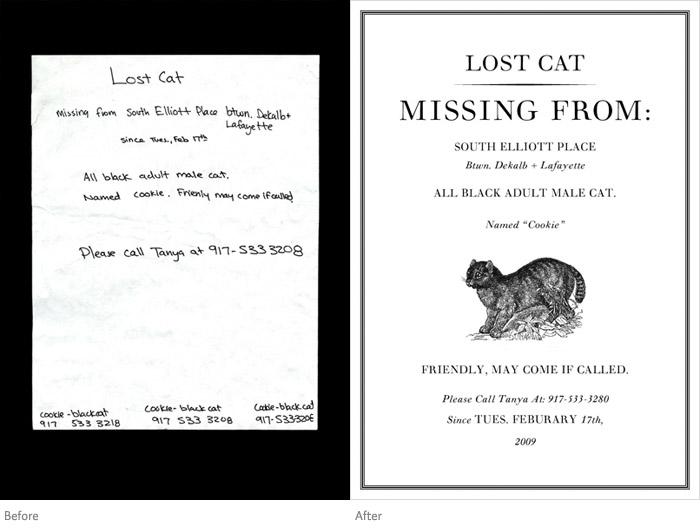 Lost Cat
Missing from South Elliott Place btwn. Dekalb +
Lafayette
Since Tues., Feb 17th
All black adult male cat.
Named cookie. Frienly may come if called
Please call Tanya at 917-533 3208
cookie-black cat
917 533 3218
Cookie-black cat
917 533 3208
Cookie-black cat
917-5333208
Before
LOST CAT
MISSING FROM:
SOUTH ELLIOTT PLACE
Btwn. Dekalb + Lafayette
ALL BLACK ADULT MALE CAT.
Named “Cookie”
FRIENDLY, MAY COME IF CALLED.
Please Call Tanya At: 917-533-3280
Since TUES. FEBURARY 17th,
2009
After